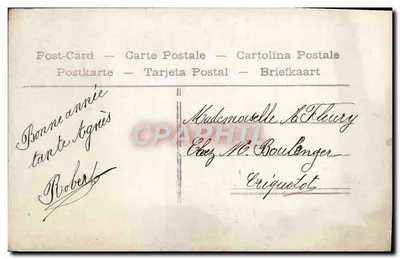 Post-Card — Carte Postale — Cartolina Postale
Postkarte — Tarjeta Postal — Briefkaart
Bonne année
tante Agnès
Robert
Mademoiselle A. Fleury
Chez M. Boulenger
Criquetot
CPARAMA.COM